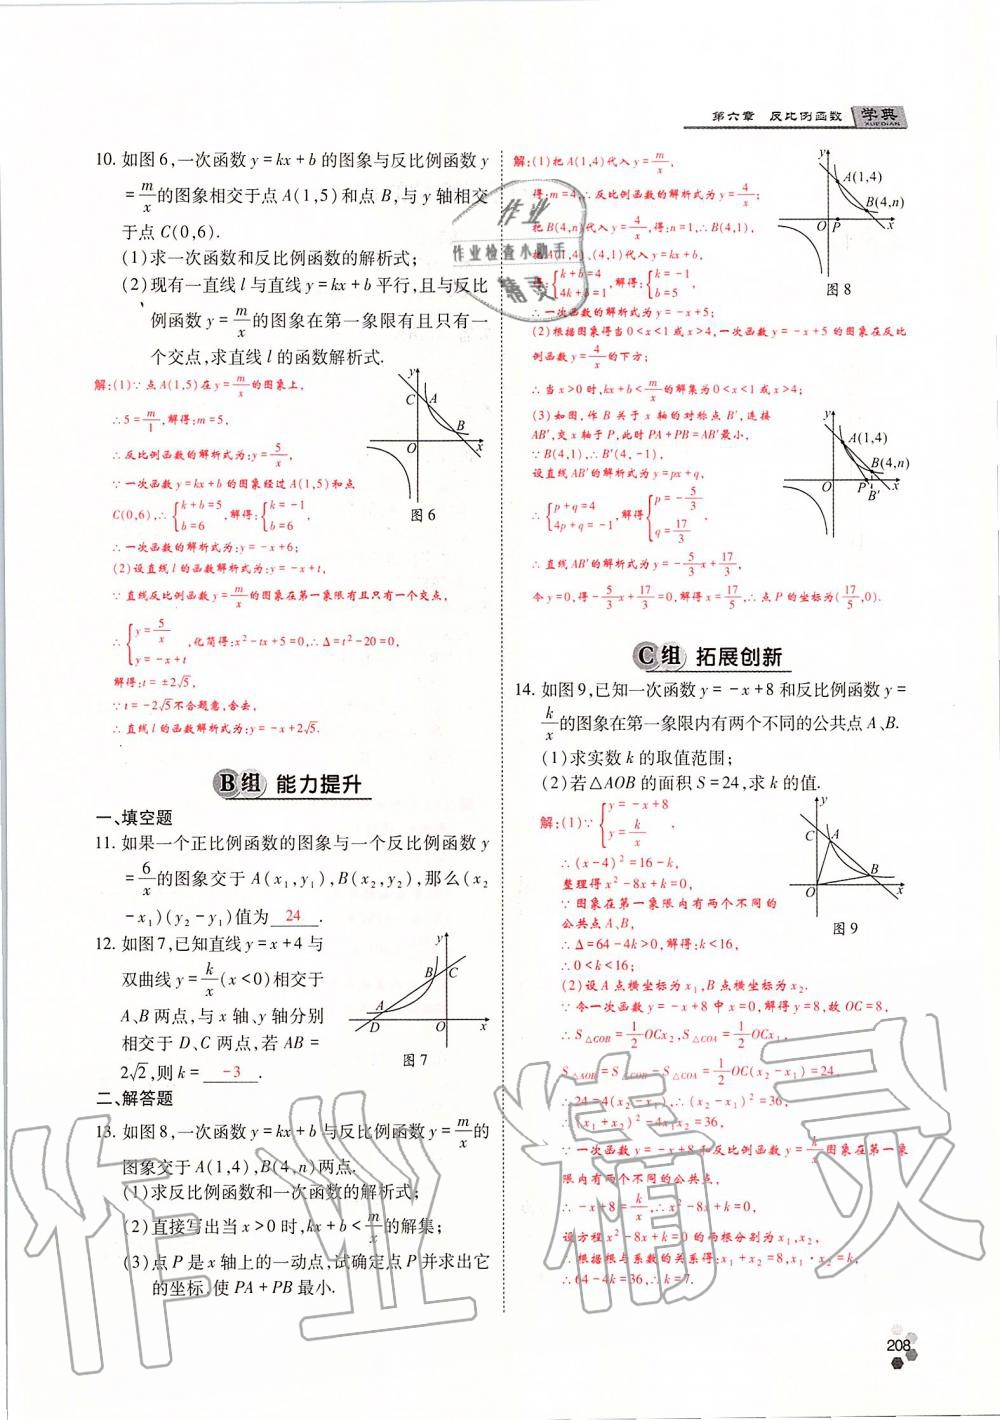 第六章　反比例函数　学典
XUEDIAN
10. 如图6,一次函数y=kx+b的图象与反比例函数y
=m/x的图象相交于点A(1,5)和点B,与y轴相交
于点C(0,6).
(1)求一次函数和反比例函数的解析式;
(2)现有一直线l与直线y=kx+b平行,且与反比
例函数y=m/x的图象在第一象限有且只有一
个交点,求直线l的函数解析式.
解:(1)∵点A(1,5)在y=m/x的图象上,
∴5=m/1,解得:m=5,
∴反比例函数的解析式为:y=5/x,
∵一次函数y=kx+b的图象经过A(1,5)和点
C(0,6),∴{k+b=5 b=6,解得:{k=-1 b=6,
∴一次函数的解析式为:y=-x+6;
(2)设直线l的函数解析式为:y=-x+t,
∵直线反比例函数y=m/x的图象在第一象限有且只有一个交点,
∴{y=5/x y=-x+t,化简得:x²-tx+5=0,∴Δ=t²-20=0,
解得:t=±2√5,
∵t=-2√5不合题意,舍去,
∴直线l的函数解析式为:y=-x+2√5.
y
C
A
B
O
x
图6
B组 能力提升
一、填空题
11. 如果一个正比例函数的图象与一个反比例函数y
=6/x的图象交于A(x₁,y₁),B(x₂,y₂),那么(x₂
-x₁)(y₂-y₁)值为 24 .
12. 如图7,已知直线y=x+4与
双曲线y=k/x(x<0)相交于
A、B两点,与x轴、y轴分别
相交于D、C两点,若AB=
2√2,则k= -3 .
y
B
C
A
D
O
x
图7
二、解答题
13. 如图8,一次函数y=kx+b与反比例函数y=m/x的
图象交于A(1,4),B(4,n)两点.
(1)求反比例函数和一次函数的解析式;
(2)直接写出当x>0时,kx+b<m/x的解集;
(3)点P是x轴上的一动点,试确定点P并求出它
的坐标,使PA+PB最小.
解:(1)把A(1,4)代入y=m/x,
得:m=4,∴反比例函数的解析式为y=4/x;
把B(4,n)代入y=4/x,得:n=1,∴B(4,1),
把A(1,4)、(4,1)代入y=kx+b,
得:{k+b=4 4k+b=1,解得:{k=-1 b=5,
∴一次函数的解析式为y=-x+5;
(2)根据图象得当0<x<1或x>4,一次函数y=-x+5的图象在反比
例函数y=4/x的下方;
∴当x>0时,kx+b<m/x的解集为0<x<1或x>4;
(3)如图,作B关于x轴的对称点B′,连接
AB′,交x轴于P,此时PA+PB=AB′最小,
∵B(4,1),∴B′(4,-1),
设直线AB′的解析式为y=px+q,
∴{p+q=4 4p+q=-1,解得{p=-5/3 q=17/3,
∴直线AB′的解析式为y=-5/3x+17/3,
令y=0,得-5/3x+17/3=0,解得x=17/5,∴点P的坐标为(17/5,0).
y
A(1,4)
B(4,n)
O
P
x
图8
y
A(1,4)
B(4,n)
O
P
B′
x
C组 拓展创新
14. 如图9,已知一次函数y=-x+8和反比例函数y=
k/x的图象在第一象限内有两个不同的公共点A、B.
(1)求实数k的取值范围;
(2)若△AOB的面积S=24,求k的值.
解:(1)∵{y=-x+8 y=k/x,
∴(x-4)²=16-k,
整理得x²-8x+k=0,
∵图象在第一象限内有两个不同的
公共点A、B,
∴Δ=64-4k>0,解得:k<16,
∴0<k<16;
(2)设A点横坐标为x₁,B点横坐标为x₂.
∵令一次函数y=-x+8中x=0,解得y=8,故OC=8,
∴S△COB=1/2OCx₂,S△COA=1/2OCx₁,
S△AOB=S△COB-S△COA=1/2OC(x₂-x₁)=24,
∴24=4(x₂-x₁),∴(x₂-x₁)²=36,
∴(x₁+x₂)²-4x₁x₂=36,
∵一次函数y=-x+8和反比例函数y=k/x图象在第一象
限内有两个不同的公共点,
∴-x+8=k/x,∴x²-8x+k=0,
设方程x²-8x+k=0的两根分别为x₁,x₂,
∴根据根与系数的关系得:x₁+x₂=8,x₁x₂=k,
∴64-4k=36,∴k=7.
y
C
A
B
O
x
图9
208
作业
作业检查小助手
精灵
作业精灵